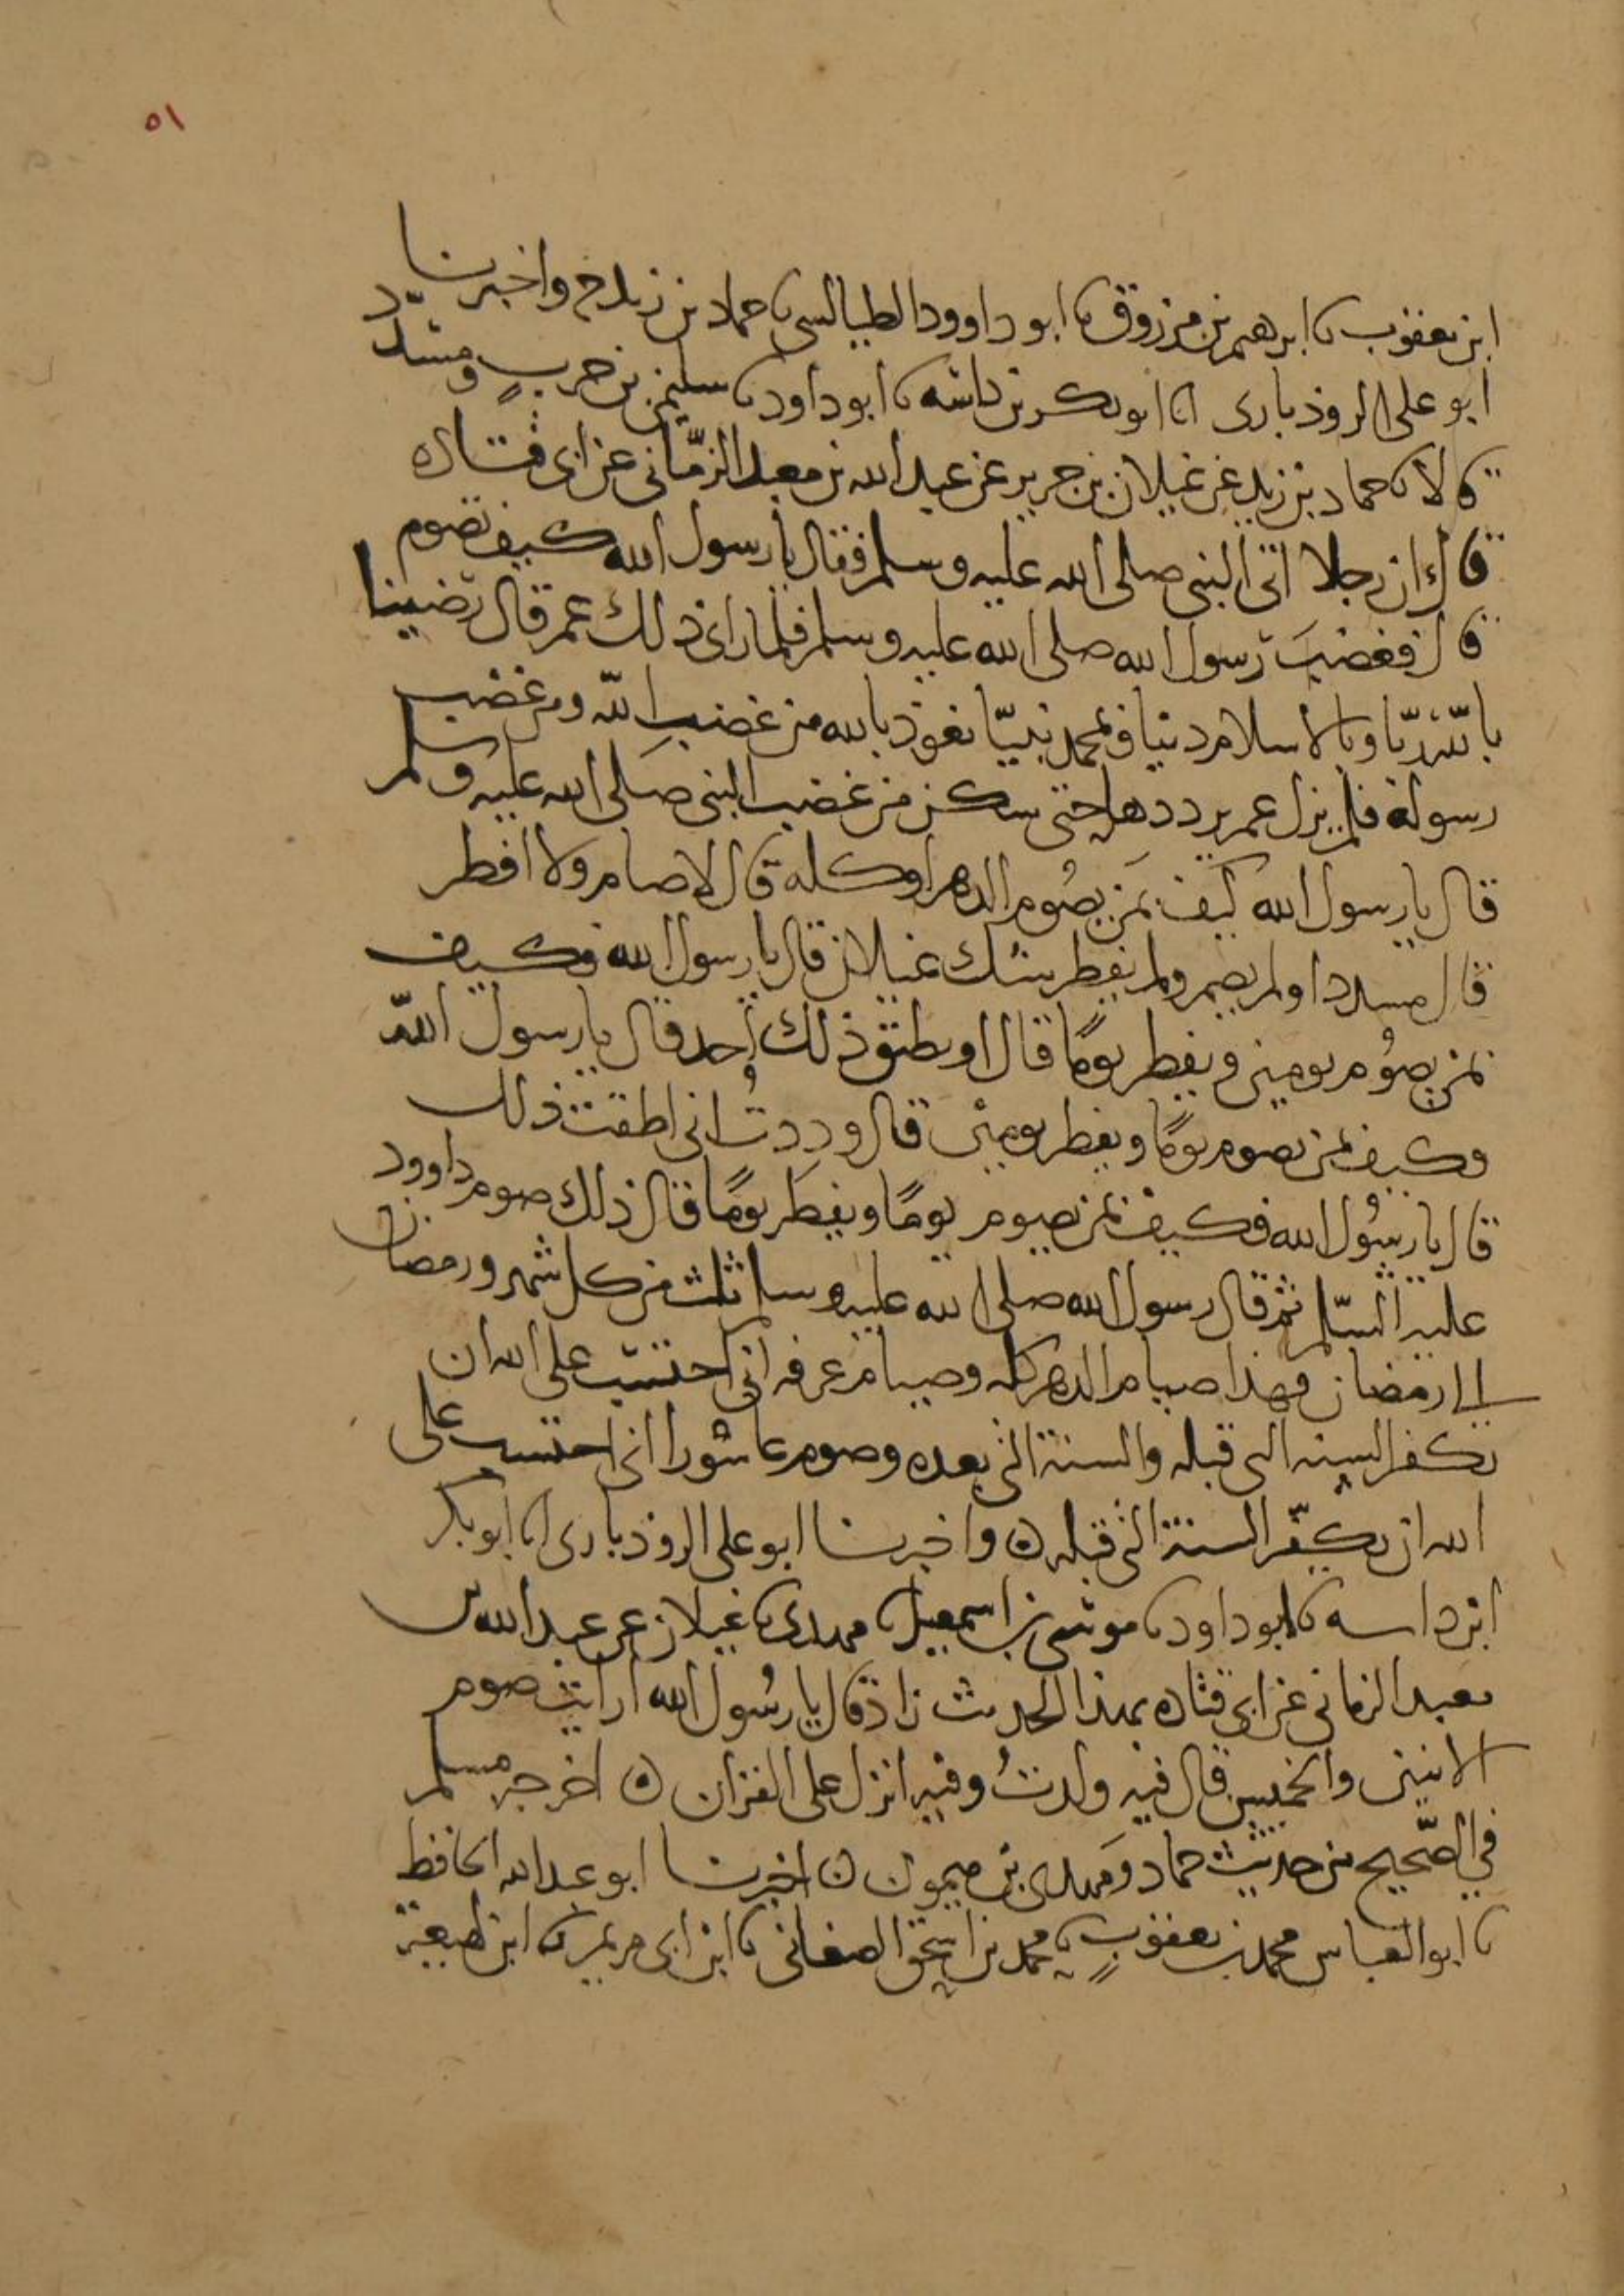 ٥١
ابن يعقوب ثنا ابرهيم بن مرزوق ثنا ابو داوود الطيالسي ثنا حماد بن زيد ح واخبرنا
ابو على الروذبارى انا ابو بكر بن داسه ثنا ابو داود ثنا سليمن بن حربٍ ومسدّد
قالا ثنا حماد بن زيد عن غيلان بن جرير عن عبد الله بن معبد الزمّانى عن ابى قتاده
قال ان رجلا اتى النبى صلى الله عليه وسلم فقال يا رسول الله كيف تصوم
قال فغضبَ رسول الله صلى الله عليه وسلم فلما راى ذلك عمر قال رضينا
بالله ربّا وبالاسلام دينا وبمحمد نبيّا نعوذ بالله من غضب الله ومن غضب
رسوله فلم يزل عمر يرددها حتى سكن من غضب النبى صلى الله عليه وسلم
قال يا رسول الله كيف بمَن يصُوم الدهر او كله قال لا صام ولا افطر
قال مسدد او لم يصم ولم يفطر شك غيلان قال يا رسول الله فكيف
بمن يصُوم يومين ويفطر يومًا قال او يطيق ذلك أحد قال يا رسول الله
وكيف بمن يصوم يومًا ويفطر يومين قال وددتُ انى اطقت ذلك
قال يا رسُول الله فكيف بمن يصوم يومًا ويفطر يومًا قال ذلك صوم داوود
عليه السّلم ثم قال رسول الله صلى الله عليه وسلم ثلث من كل شهر ورمضان
الى رمضان فهذا صيام الدهر كله وصيام عرفه انى احتسب على الله ان
يكفر السنه التى قبله والسنة التى بعده وصوم عاشورا انى احتسب على
الله ان يكفّر السنة التى قبله ۝ واخبرنا ابو على الروذبارى انا ابو بكر
ابن داسه ثنا ابو داود ثنا موسى بن اسمعيل ثنا مهدى ثنا غيلان عن عبد الله بن
معبد الزمانى عن ابى قتاده بهذا الحديث زاد قال يا رسُول الله ارايت صوم
الاثنين والخميس قال فيه ولدتُ وفيه انزل على القران ۝ اخرجه مسلم
في الصّحيح من حديث حماد ومَهدى بن ميمون ۝ اخبرنا ابو عبد الله الحافظ
ثنا ابو العباس محمد بن يعقوب ثنا محمد بن اسحق الصغانى ثنا ابن ابى مريم ثنا ابن لهيعة